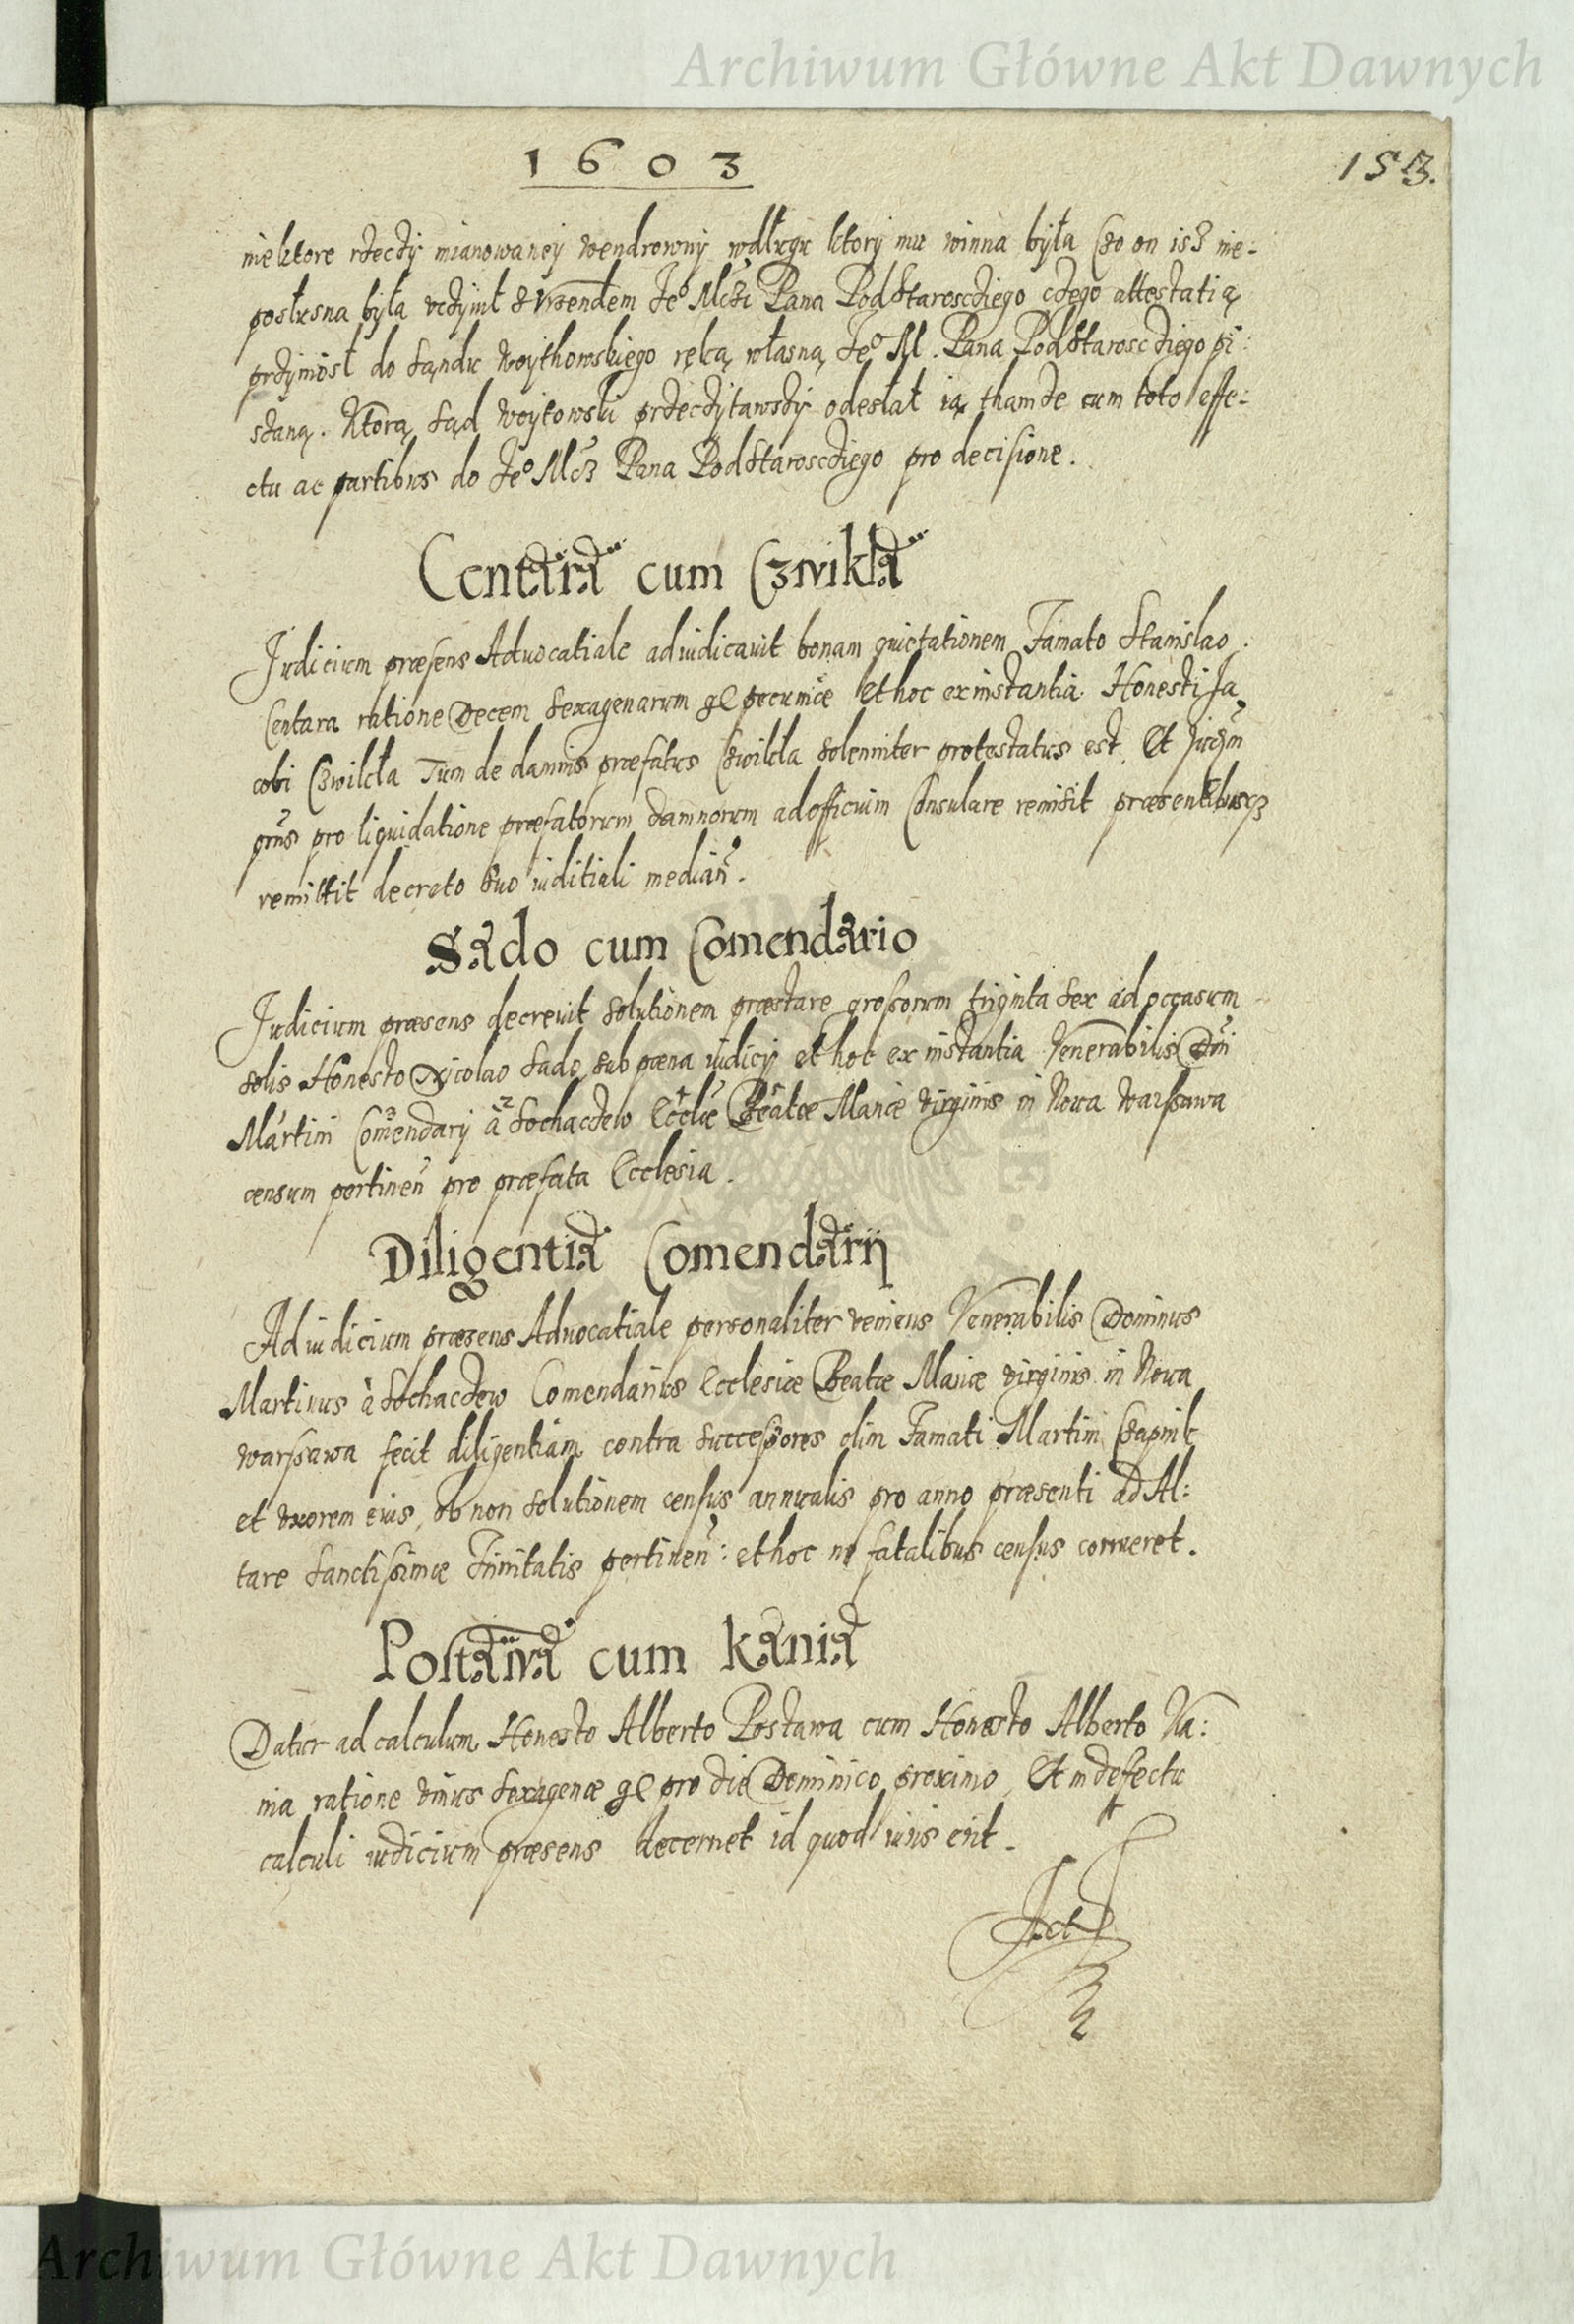 Archiwum Główne Akt Dawnych
1603
153.
niektore rzeczy mianowaney wendrowny wdługu ktory mu winna była Czo on isz nie-
posłusna była vczynił z Vrzendem Jeº Mczi Pana PodStaroscziego czego attestatią
przyniosł do Sąndu Woythowskiego ręką własną Jeº M. Pana PodStaroscziego pi:
szaną. Ktorą Sąd Woytowski przeczytawszy odesłał ią thamze cum toto effe-
ctu ac partibus do Jeº Mcz Pana PodStarosczieg͏o pro decisione.
Centara cum Czwikła
Judicium præsens Advocatiale adiudicavit bonam quietationem Famato Stanislao
Centara ratione Decem Sexagenarum pecuniæ et hoc ex instantia Honesti Ja
cobi Czwikła Tum de damnis præfatus Czwikła Solenniter protestatus est. Et Judm
prns pro liquidatione præfatorum damnorum ad officium Consulare remisit præsentibusq3
remittit decreto Suo iuditiali median.
Sado cum Comendario
Judicium præsens decrevit Solutionem præstare grossorum triginta Sex ad occasum
Solis Honesto Nicolao Sado, sub pœna iudicij et hoc ex instantia Venerabilis Dni
Martini Comendarij à Sochaczew Ecclæ Beatæ Mariæ Virginis in Nova Warssawa
censum pertinen pro præfata Ecclesia.
Diligentia Comendarij
Ad iudicium præsens Advocatiale personaliter veniens Venerabilis Dominus
Martinus à Sochaczew Comendarius Ecclesiæ Beatæ Mariæ Virginis in Nova
Warssawa fecit diligentiam contra Successores olim Famati Martini Czapnik
et Vxorem eius, ob non Solutionem census annualis pro anno præsenti ad Al:
tare Sanctissimæ Trinitatis pertinen: et hoc ne fatalibus census corrueret.
Postawa cum Kania
Datur ad calculum Honesto Alberto Postawa cum Honesto Alberto Ka:
nia ratione Vnius Sexagenæ pro die Dominico proximo, Et in defectu
calculi iudicium præsens decernet id quod iuris erit.
Act
Archiwum Główne Akt Dawnych